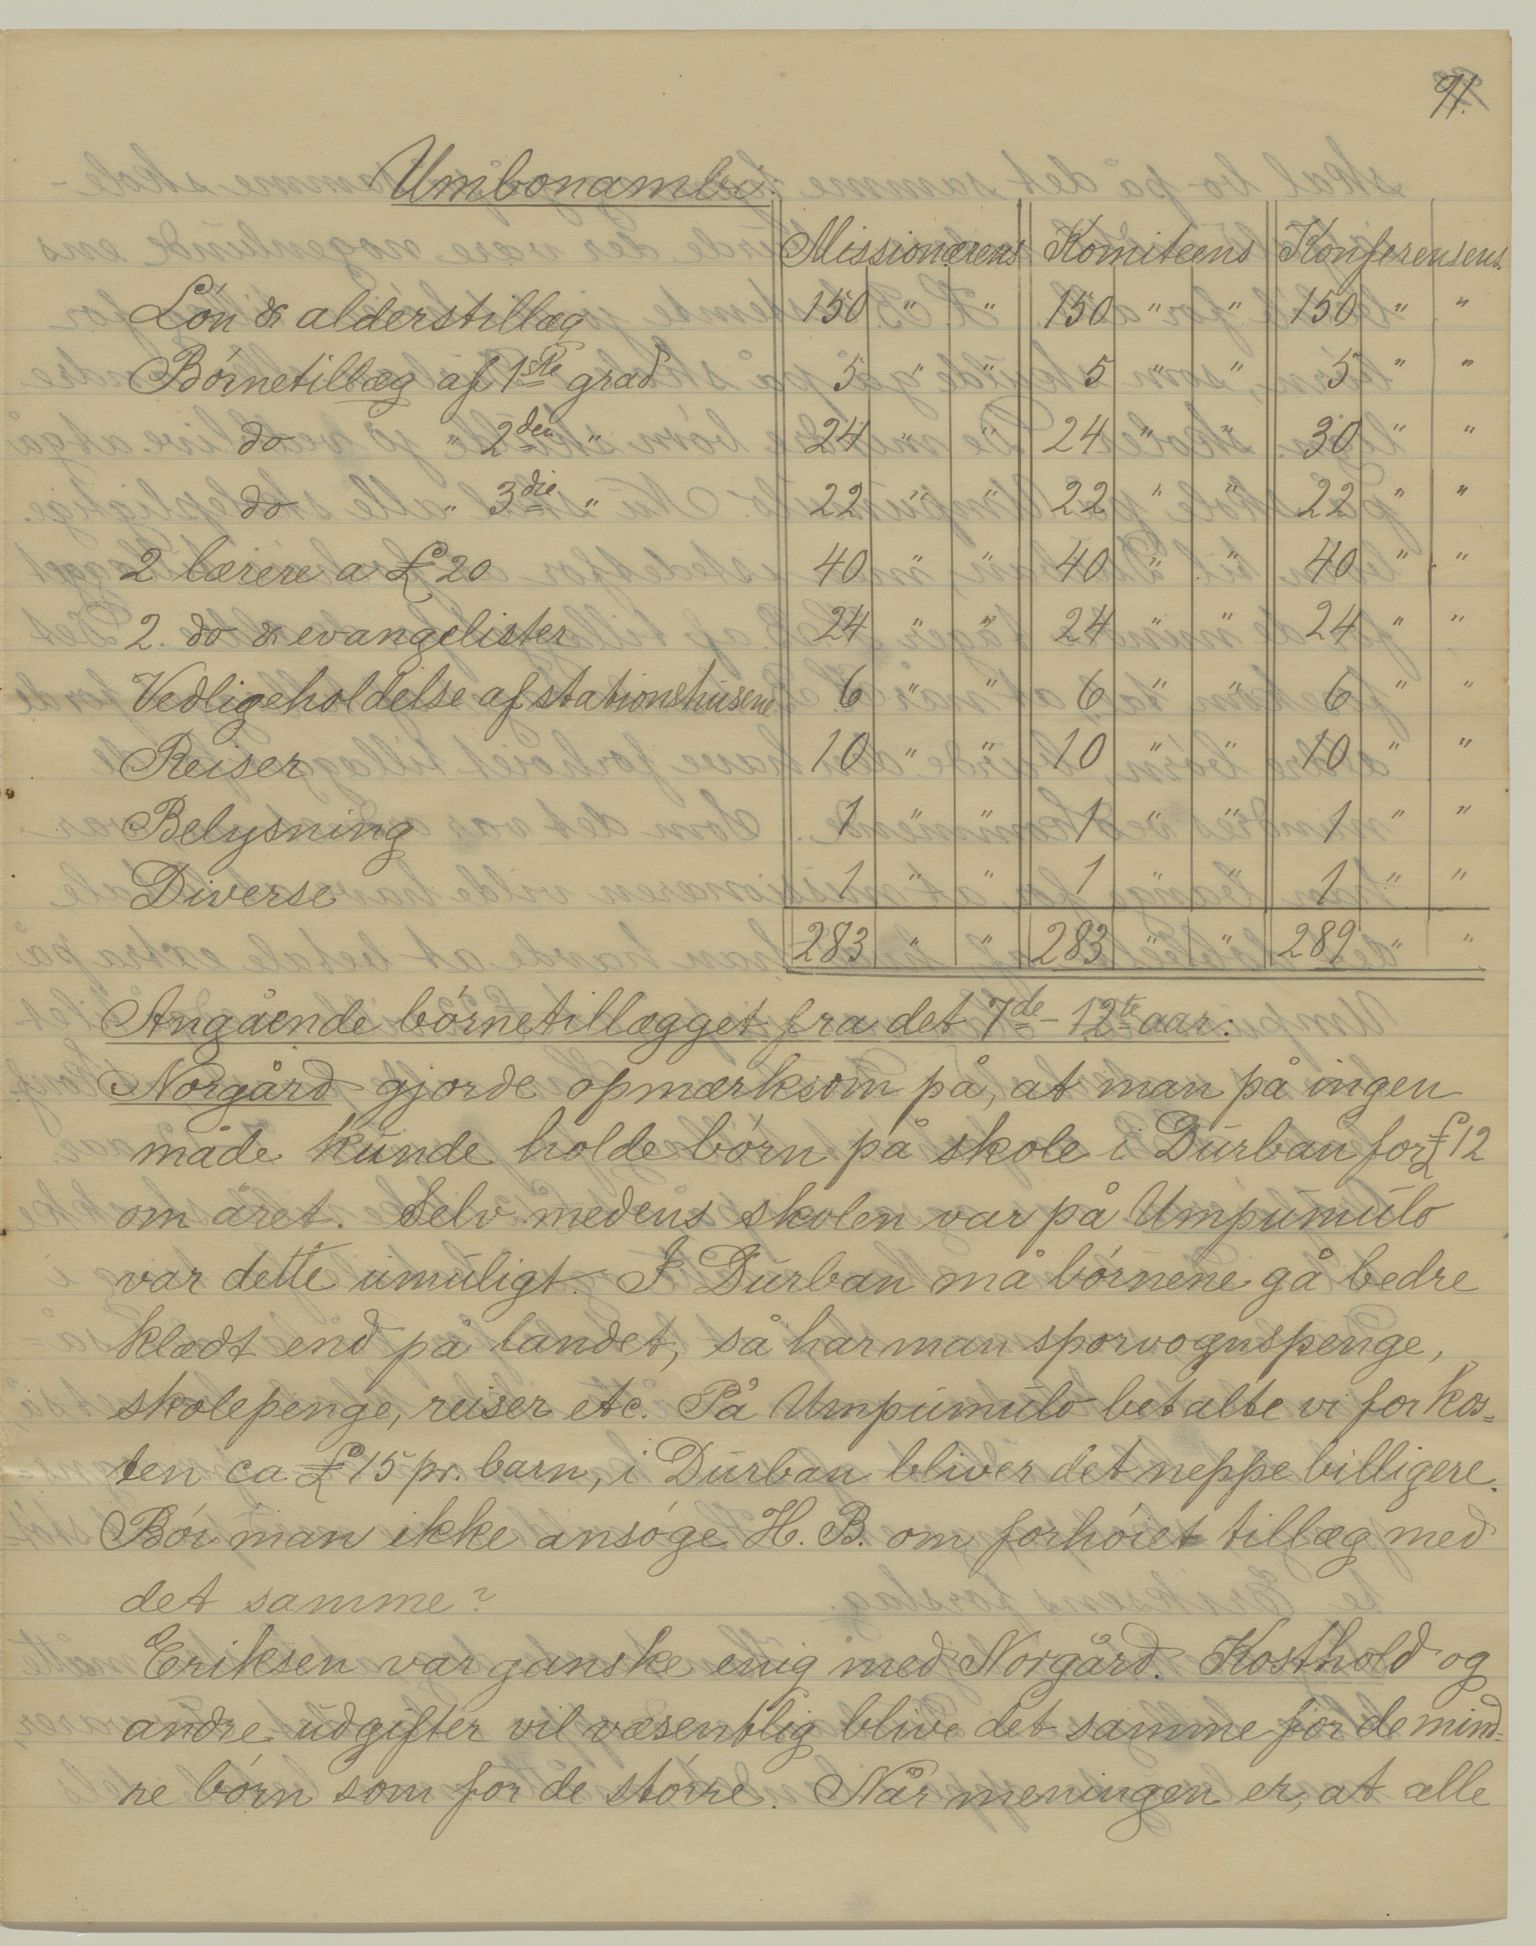 91.
Umbonambi.
Missionærens Komiteens Konferensens
Lön & alderstillæg 150 " " 150 " " 150 " "
Börnetillæg af 1ste grad 5 " " 5 " " 5 " "
do " 2den " 24 " " 24 " " 30 " "
do " 3die " 22 " " 22 " " 22 " "
2 lærere a £20 40 " " 40 " " 40 " "
2. do & evangelister 24 " " 24 " " 24 " "
Vedligeholdelse af stationshusene 6 " " 6 " " 6 " "
Reiser 10 " " 10 " " 10 " "
Belysning 1 " " 1 " " 1 " "
Diverse 1 " " 1 " " 1 " "
283 " " 283 " " 289 " "
Angående börnetillægget fra det 7de - 12te aar:
Norgård gjorde opmærksom på, at man på ingen
måde kunde holde börn på skole i Durban for £12
om året. Selv medens skolen var på Umpumulo
var dette umuligt. I Durban må börnene gå bedre
klædt end på landet, så har man sporvognspenge,
skolepenge, reiser etc. På Umpumulo betalte vi for kos-
ten ca £15 pr. barn, i Durban bliver det neppe billigere.
Bör man ikke ansöge H. B. om forhöiet tillæg med
det samme?
Eriksen var ganske enig med Norgård. Kosthold og
andre udgifter vil væsentlig blive det samme for de mind-
re börn som for de större. Når meningen er, at alle